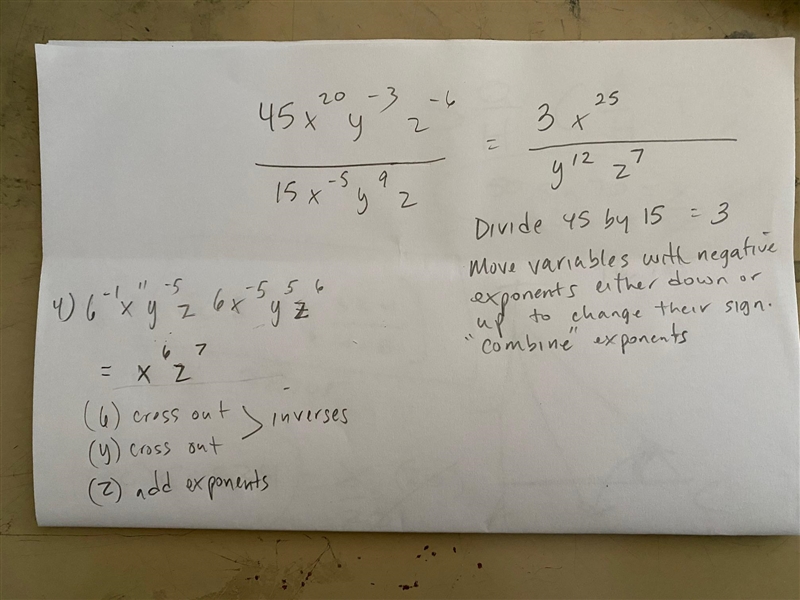 45x²⁰y⁻³z⁻⁶ / 15x⁻⁵y⁹z = 3x²⁵ / y¹²z⁷
Divide 45 by 15 = 3
Move variables with negative
exponents either down or
up to change their sign.
"combine" exponents
4) 6⁻¹x¹¹y⁻⁵z 6x⁻⁵y⁵z⁶
= x⁶z⁷
(6) cross out > inverses
(y) cross out
(z) add exponents